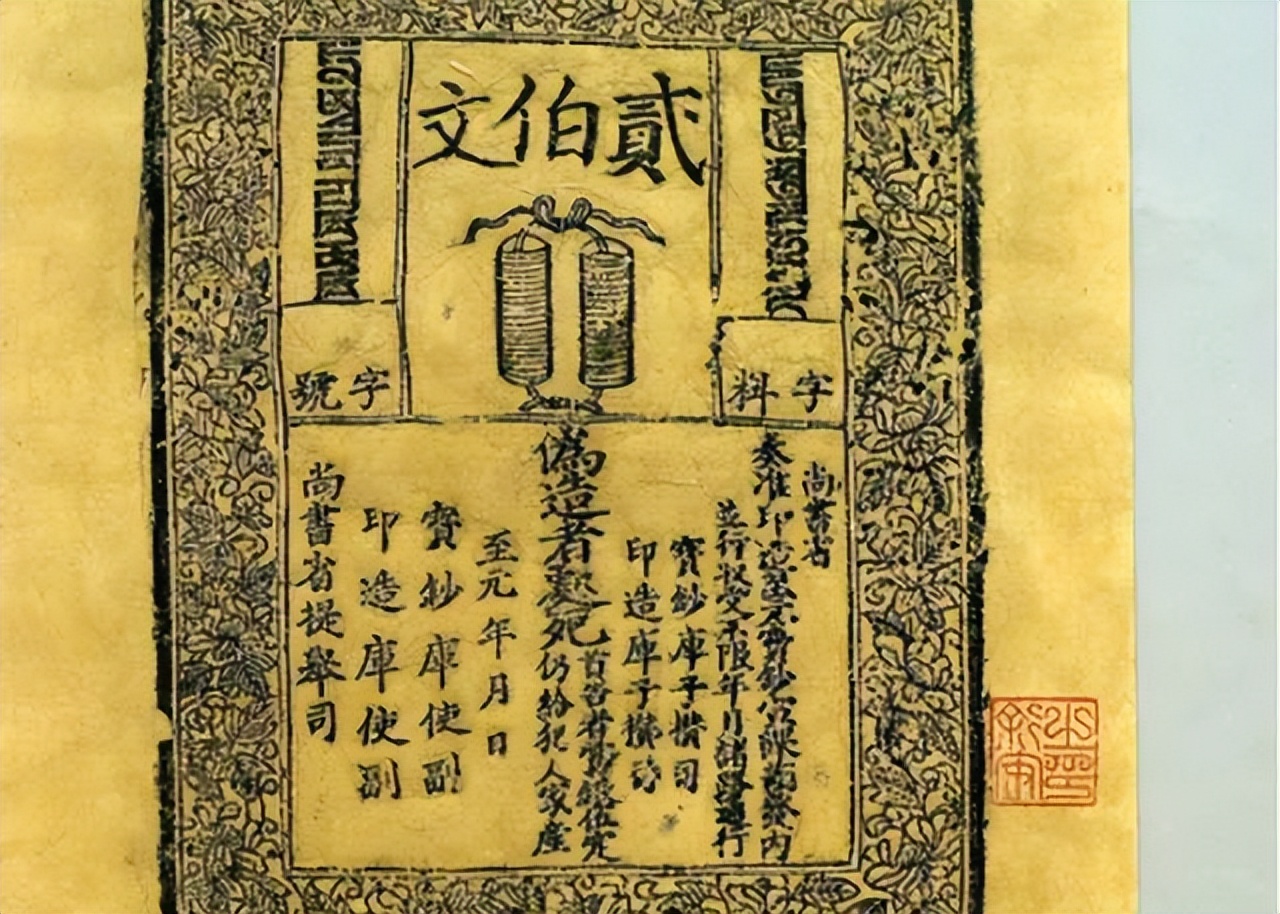 貳伯文
字料
字號
尚書省
奏准印造至元寶鈔宣課差發內
並行收受不限年月諸路通行
寶鈔庫子攢司
印造庫子攢司
偽造者處死
首告者賞銀伍定
仍給犯人家産
至元年月日
寶鈔庫使副
印造庫使副
尚書省提舉司